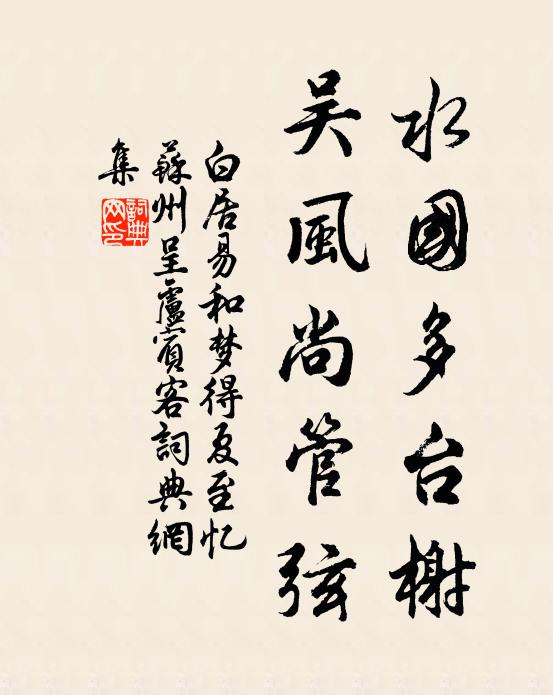 水國多台榭
吴風尚管弦
白居易和梦得夏至忆
蘇州呈盧賓客詞典網
集
詞典
网印